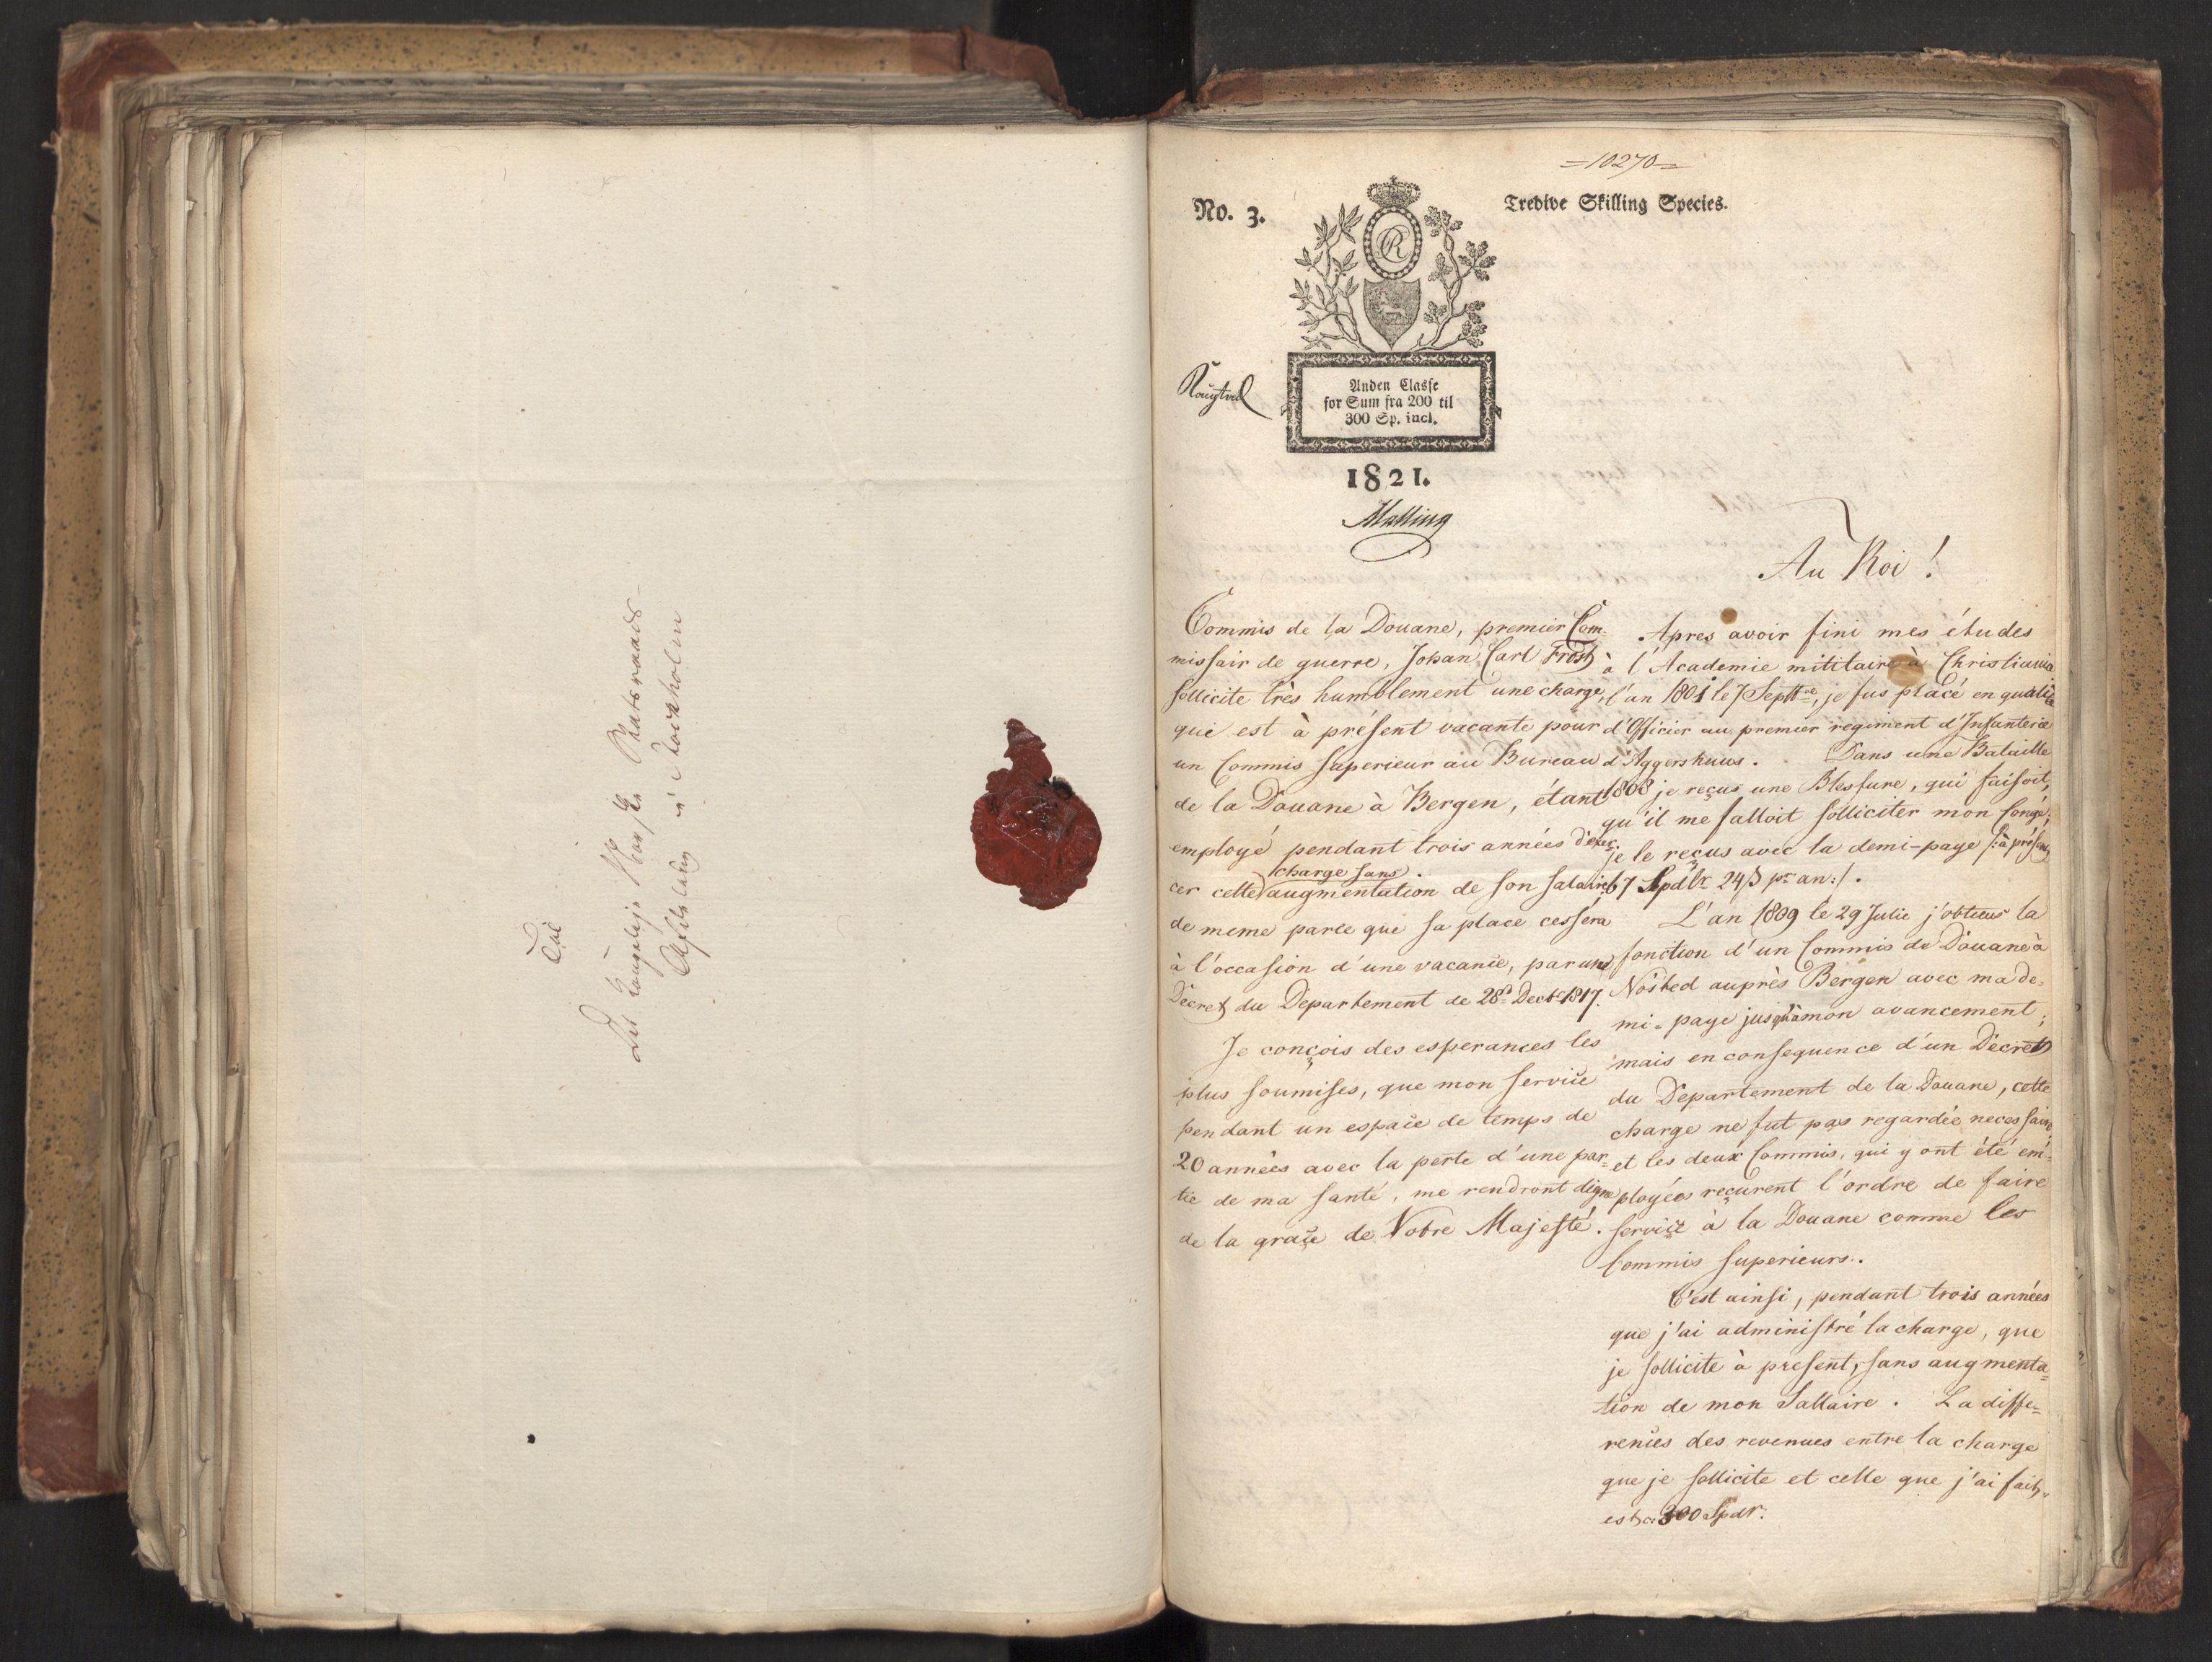 Til
Det Kongelige Norske Statsraads-
Afdeling i Stockholm
=10270=
No. 3.
Tredive Skilling Species.
Anden Classe
for Sum fra 200 til
300 Sp. incl.
1821.
Malling
Au Roi!
Commis de la Douane, premier Com-
missair de guerre, Johan Carl Frost
sollicite très humblement une charge,
qui est à présent vacante pour
un Commis superieur au Bureau
de la Douane à Bergen, étant
employé pendant trois années d'exer-
cer cette charge sans augmentation de son salaire
de meme parce que sa place cessera
à l'occasion d'une vacance, par un
Décret du Departement de 28d Decbr 1817.
Je conçois des esperances les
plus soumises, que mon service
pendant un espace de temps de
20 années avec la perte d'une par-
tie de ma santé, me rendront digne
de la grace de Votre Majesté.
Apres avoir fini mes études
à l'Academie militaire à Christiania
l'an 1801 le 7 Septbre, je fus placé en qualité
d'Officier au premier regiment d'Infanterie
d'Aggershuus. Dans une Bataille
1808 je reçus une Blessure, qui faisoit,
qu'il me falloit solliciter mon Congé;
je le reçus avec la demi-paye /: à présent
67 Spdlr 24 ß pr an :/.
L'an 1809 le 29 Julii j'obtins la
fonction d'un Commis de Douane à
Nösted auprès Bergen avec ma de-
mi-paye jusqu'à mon avancement;
mais en consequence d'un Décret
du Departement de la Douane, cette
charge ne fut pas regardée necessaire
et les deux Commis, qui y ont été em-
ployées reçurent l'ordre de faire
service à la Douane comme les
Commis superieurs.
C'est ainsi, pendant trois années
que j'ai administré la charge, que
je sollicite à present, sans augmenta-
tion de mon Sallaire. La diffe-
rences des revenues entre la charge
que je sollicite et celle que j'ai fait,
est 300 Spdr: